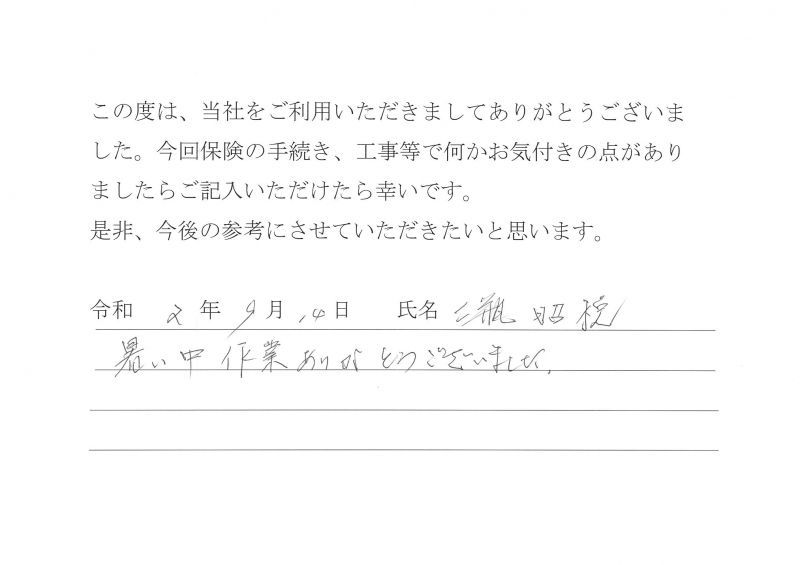 この度は、当社をご利用いただきましてありがとうございま
した。今回保険の手続き、工事等で何かお気付きの点があり
ましたらご記入いただけたら幸いです。
是非、今後の参考にさせていただきたいと思います。
令和 2 年 9 月 14 日 氏名 三瓶 昭
暑い中 作業ありがとうございました。